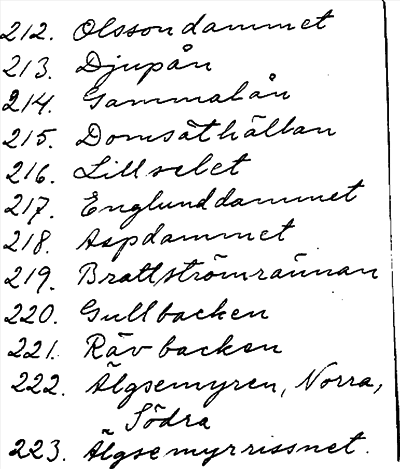 212. Olssondammet
213. Djupån
214. Gammalån
215. Domsäthällan
216. Lillselet
217. Englunddammet
218. Aspdammet
219. Brattströmrännan
220. Gullbacken
221. Rävbacken
222. Älgsemyren, Norra,
Södra
223. Älgsemyrrissnet.